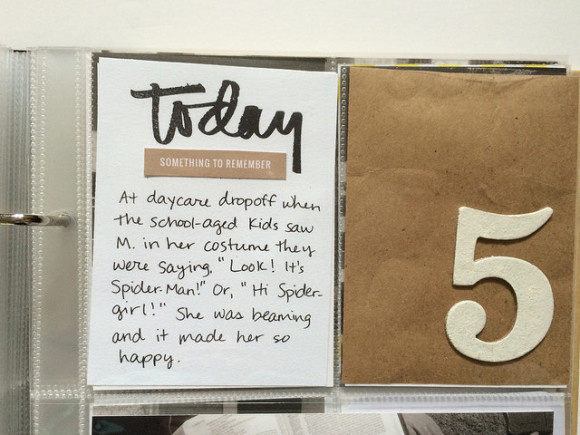 today
SOMETHING TO REMEMBER
At daycare dropoff when
the school-aged kids saw
M. in her costume they
were saying, "Look! It's
Spider-Man!" Or, "Hi Spider-
girl!" She was beaming
and it made her so
happy.
5